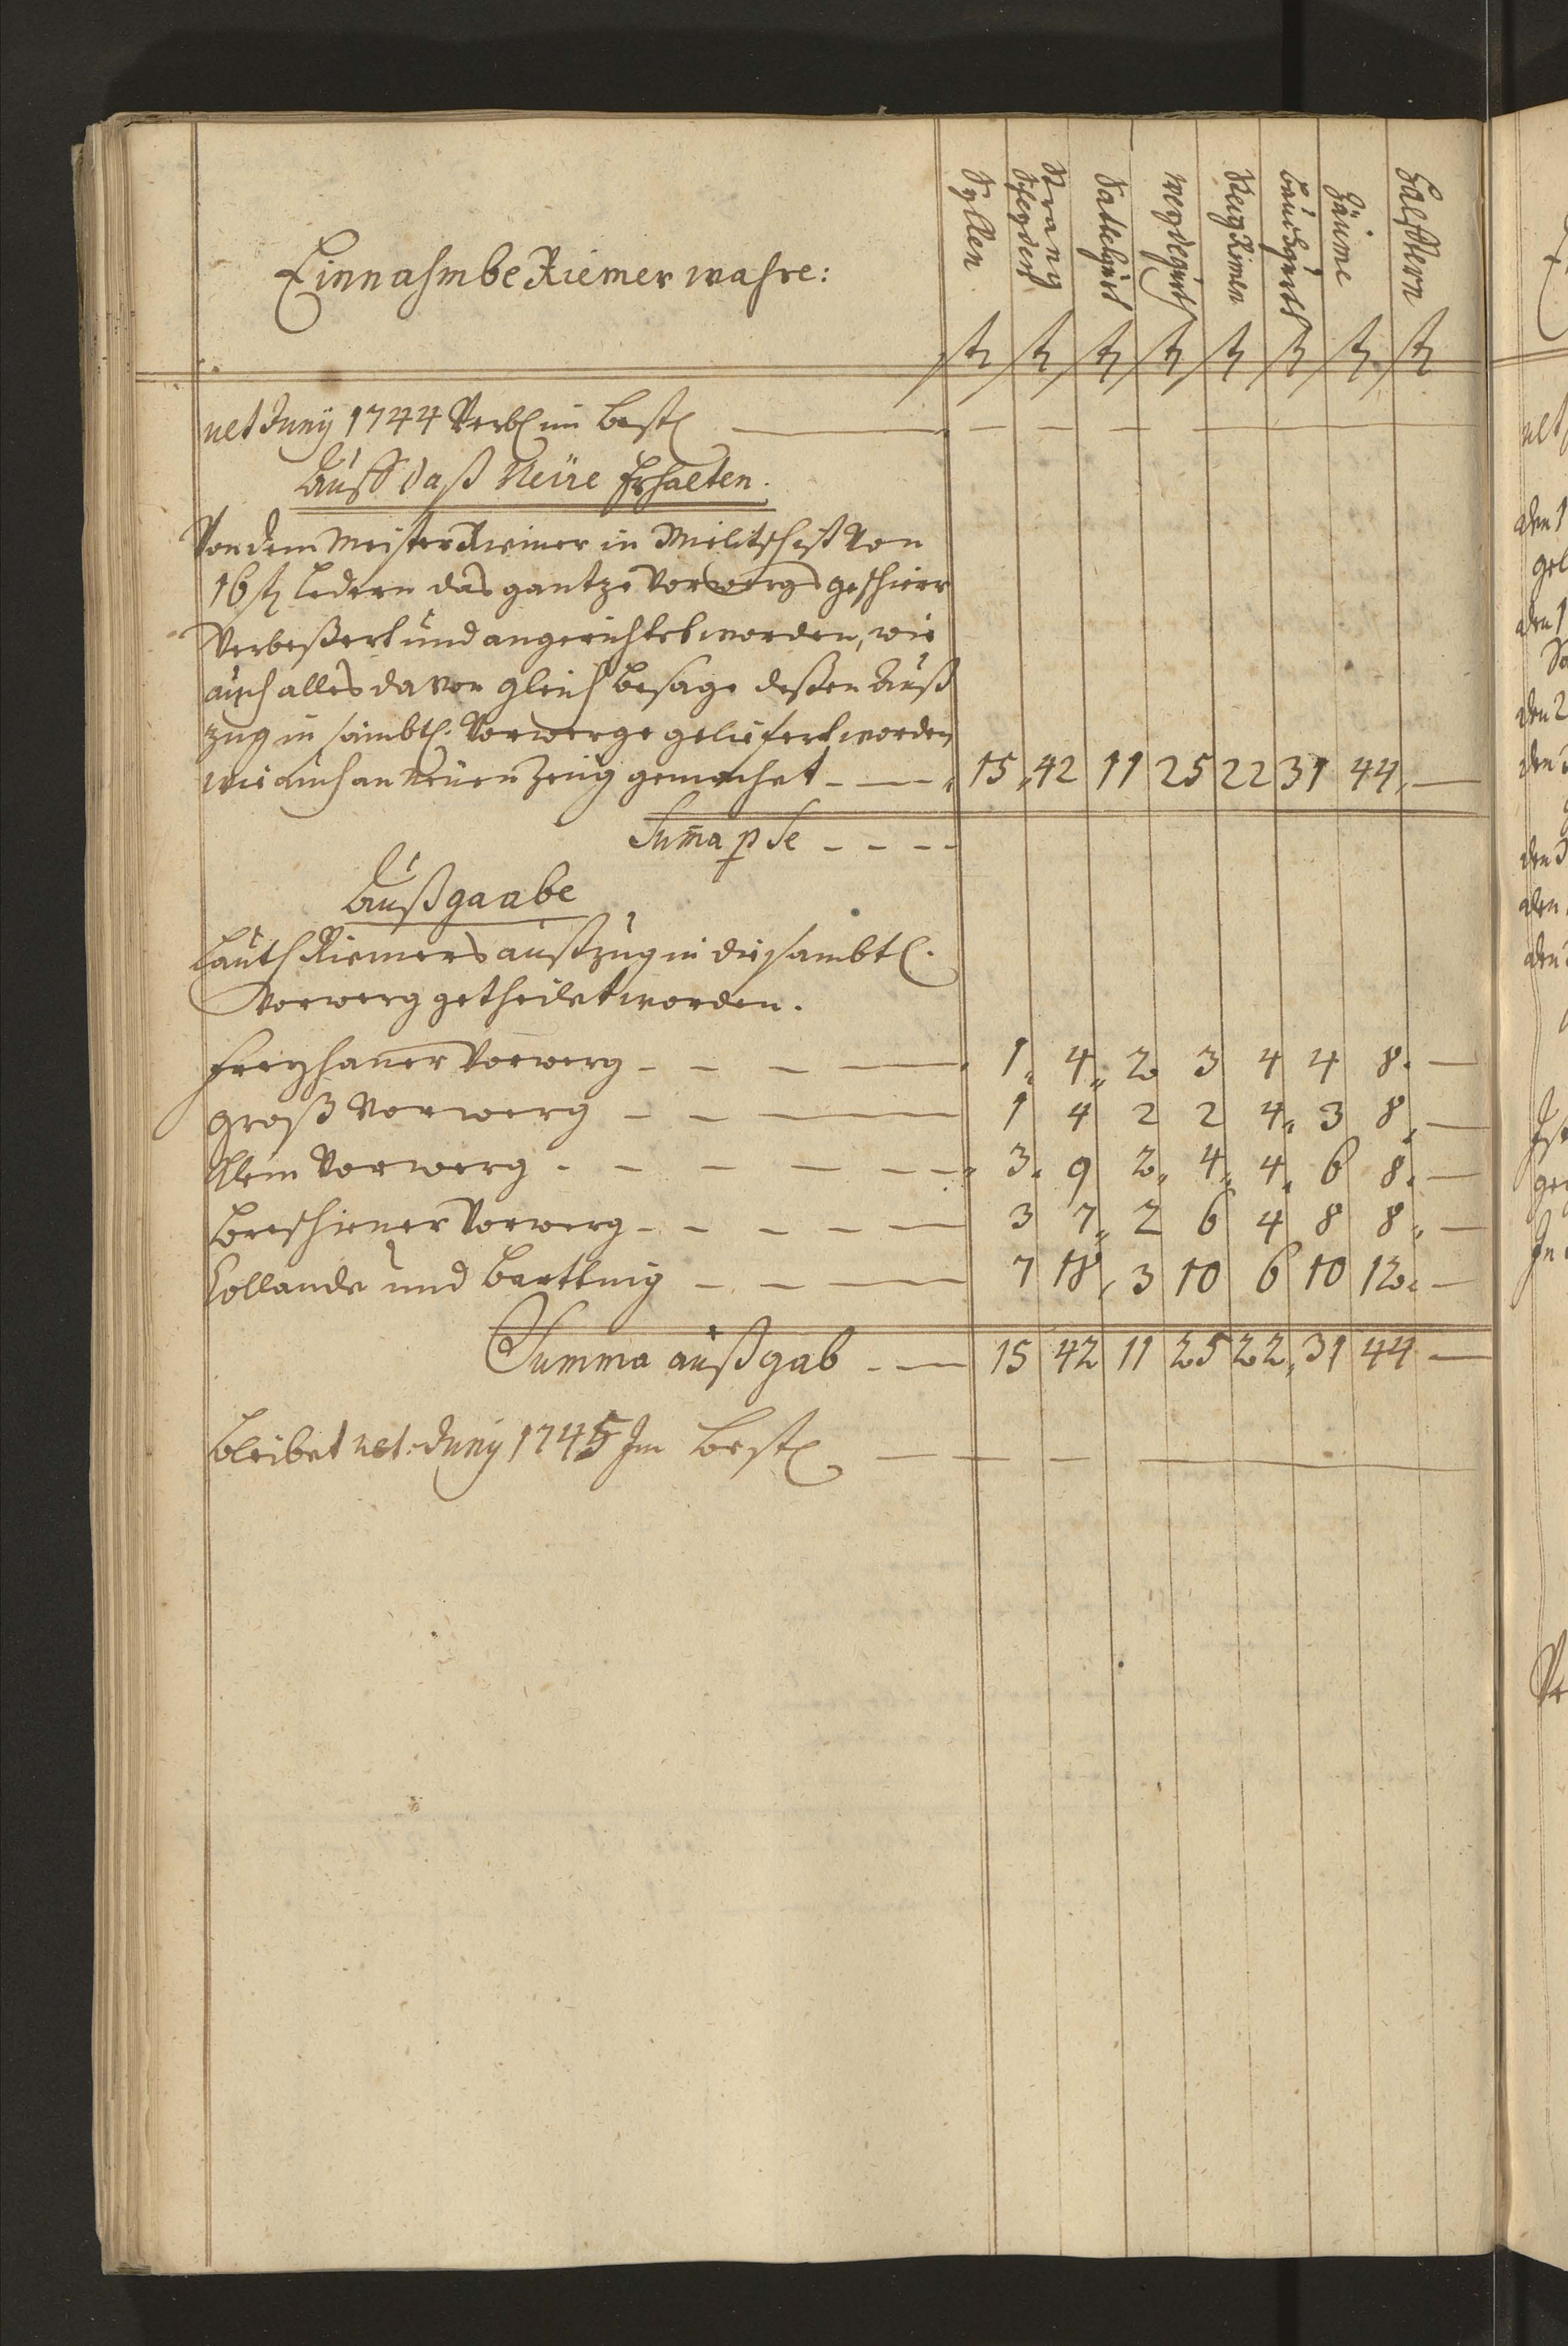 Einnahmbe Riemer wahre:
Syllen
Strang
Sattelgurt
Reitz Riemen
Bauchgurth
Zäume
Halfftern
st st st st st st st st
ult Juny 1744 Verbl im Best — — — —
Auff daß Neüe Erhalten.
Von dem Meister Riemer in Militsch ist Von
16 st Ledern das gantze Vorwergs geschirr
Verbeßert und angerichtet worden, wie
auch alles davon gleich besage deßen Auß
zug in sämbtl. Vorwerge geliefert worden
wie auch an Neüen Zeüg gemachet — 15 42 11 25 22 31 44 —
Suma p Se — — —
Außgaabe
Lauth Riemers außzug in die sambtl.
Vorwerg getheilet worden.
Freyhaner Vorwerg — — — 1 4 2 3 4 4 8 —
Groß Vorwerg — — — 1 4 2 2 4 3 8 —
Klein Vorwerg — — — 3 9 2 4 4 6 8 —
Breschiner Vorwerg — — — 3 7 2 6 4 8 8 —
Collande und Bartknig — — — 7 18 3 10 6 10 12 —
Summa außgab — 15 42 11 25 22 31 44 —
Bleibet ult. Juny 1745 Im Best — — —